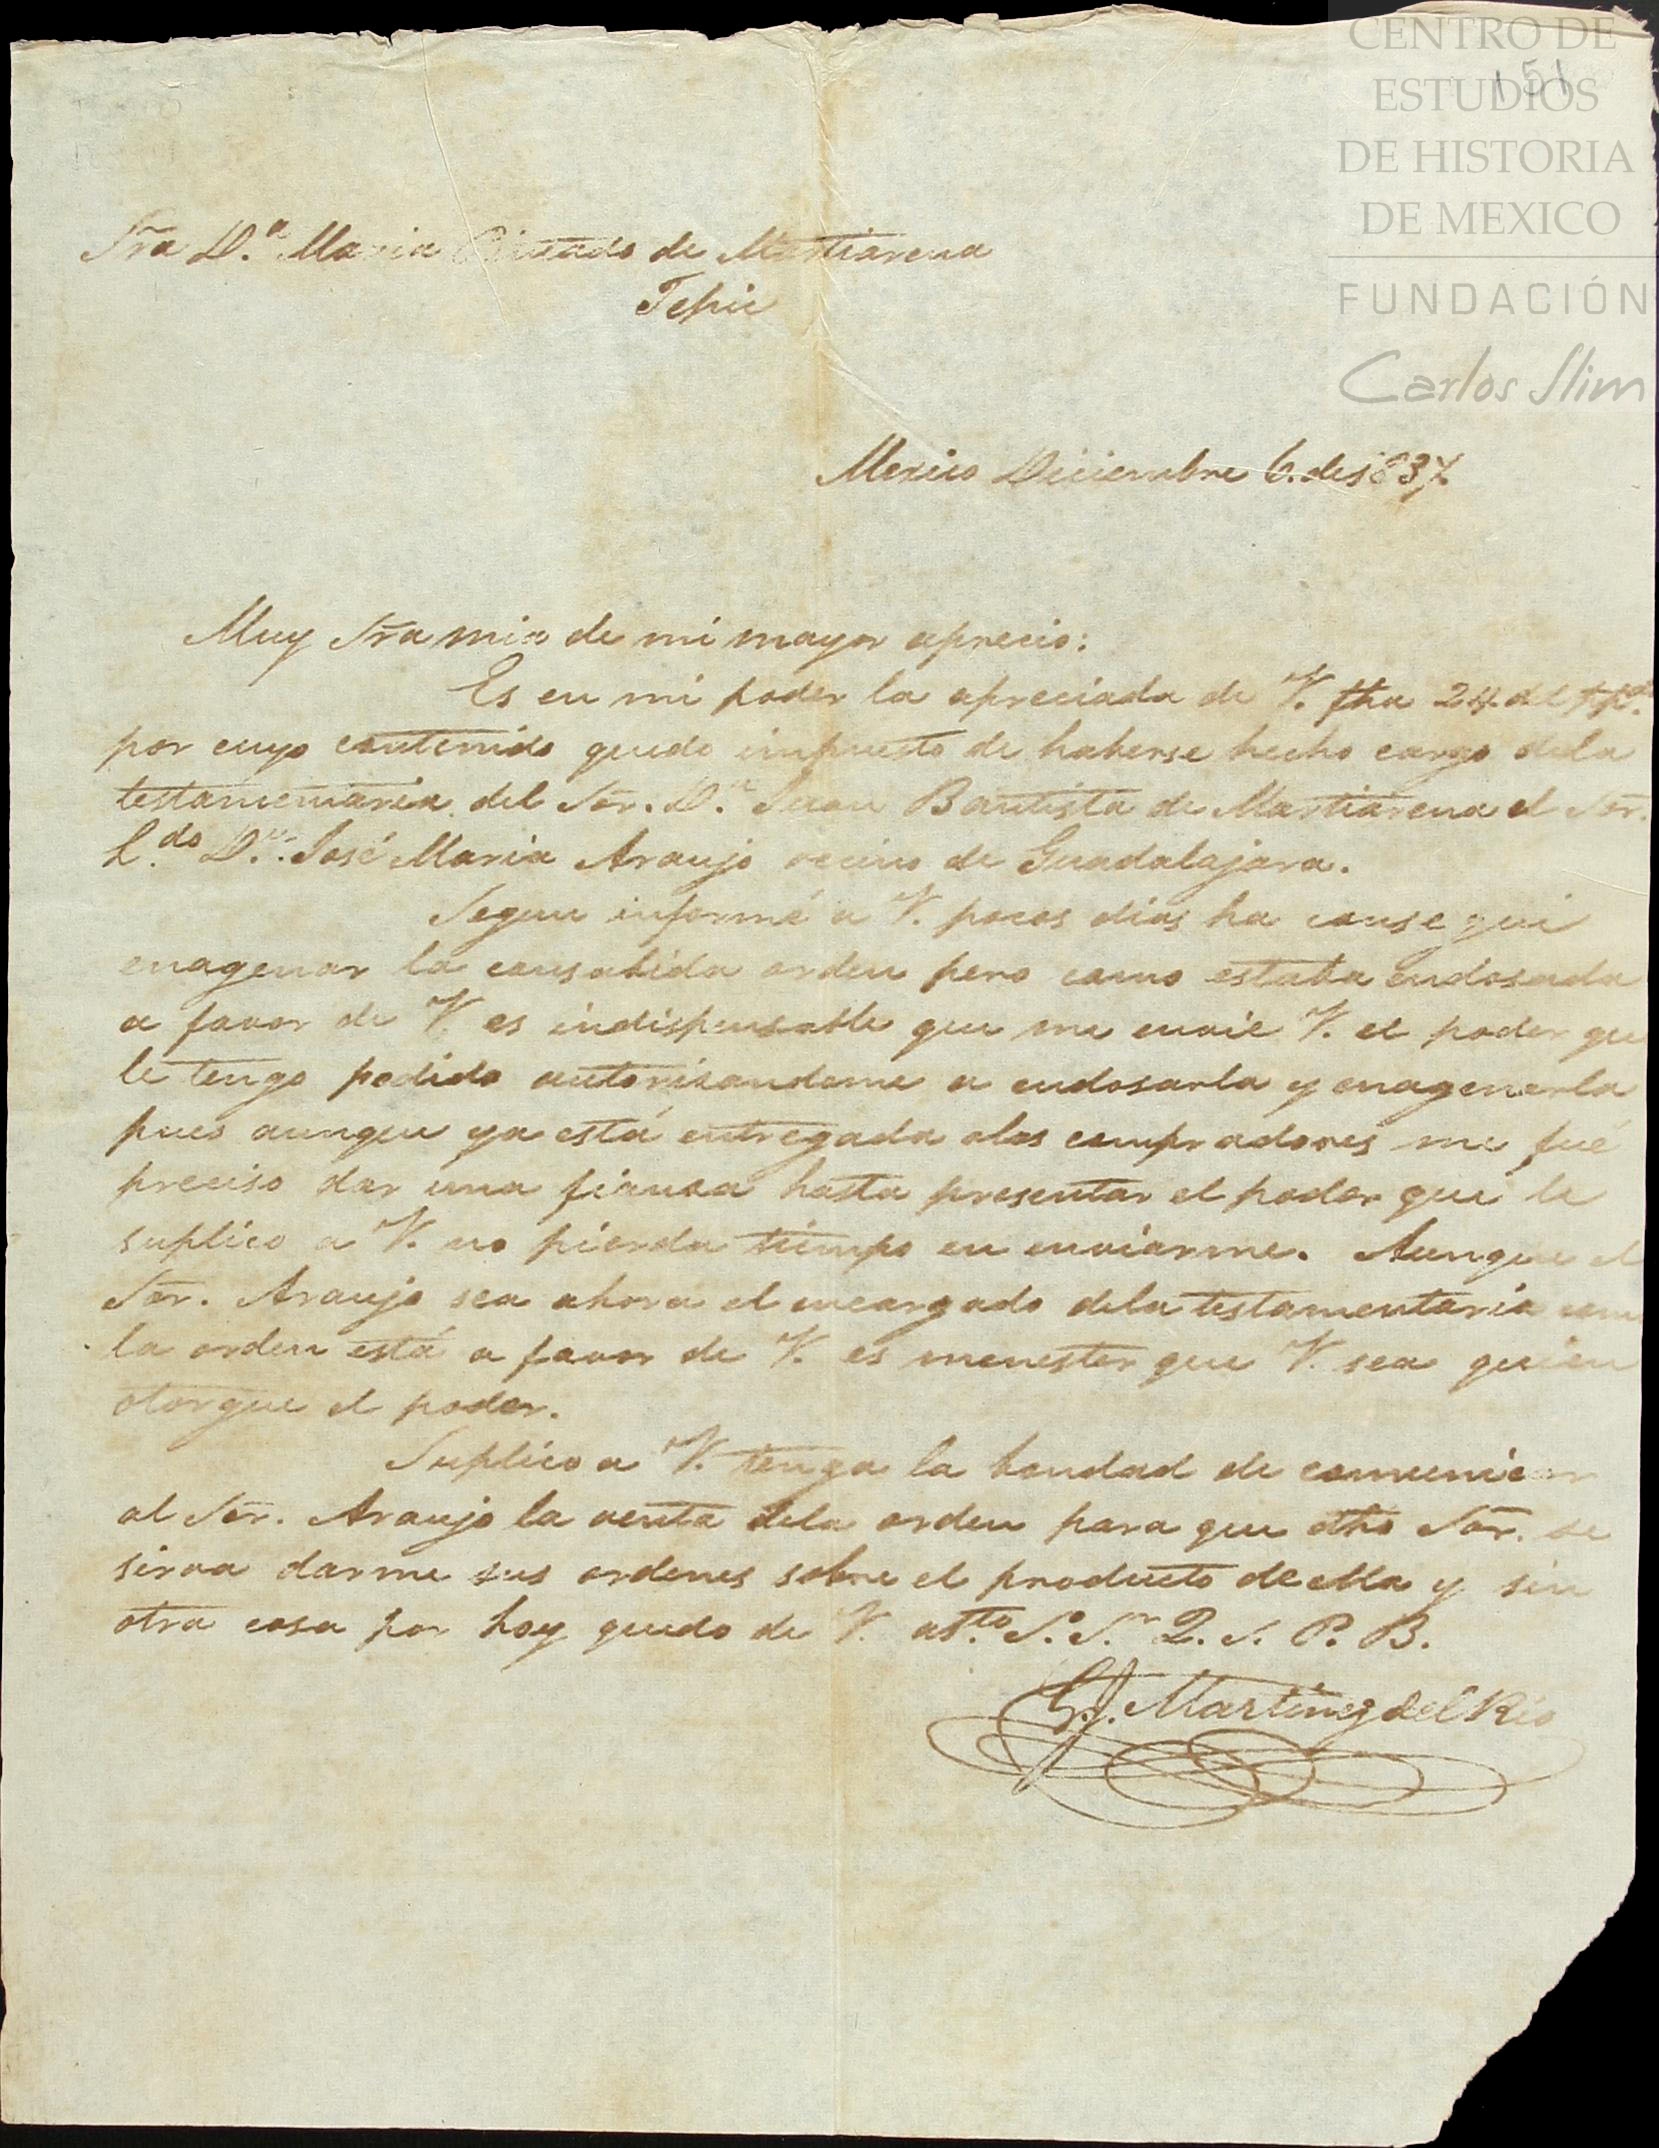 CENTRO DE
ESTUDIOS
DE HISTORIA
DE MEXICO
FUNDACIÓN
Carlos Slim
151
Sra D.ª Maria de Martiarena
Tepic
Mexico Diciembre 6. de 1837.
Muy Sra mia de mi mayor aprecio:
Es en mi poder la apreciada de V. fha 24. del pp.do
por cuyo contenido quedo impuesto de haberse hecho cargo dela
testamentaria del Sor. D.n Juan Bautista de Martiarena el Sor.
L.do D.n José Maria Araujo vecino de Guadalajara.
Segun informé a V. pocos dias ha consegui
enagenar la consabida orden pero como estaba endosada
a favor de V. es indispensable que me envie V. el poder que
le tengo pedido autorisandome a endosarla y enagenarla
pues aunque ya está entregada alos compradores me fué
preciso dar una fianza hasta presentar el poder que le
suplico a V. no pierda tiempo en enviarme. Aunque el
Sor. Araujo sea ahora el encargado dela testamentaria como
la orden está a favor de V. es menester que V. sea quien
otorgue el poder.
Suplico a V. tenga la bondad de comunicar
al Sor. Araujo la venta dela orden para que dho Sor. se
sirva darme sus ordenes sobre el producto de ella y sin
otra cosa por hoy quedo de V. at.to S. S.r Q. S. P. B.
G. J. Martinez del Rio